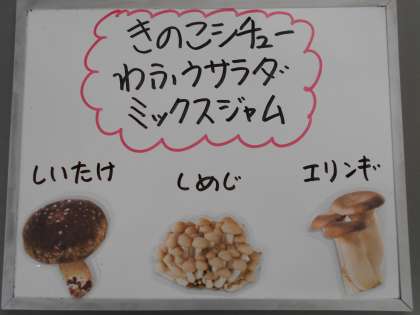 きのこシチュー
わふうサラダ
ミックスジャム
しいたけ
しめじ
エリンギ